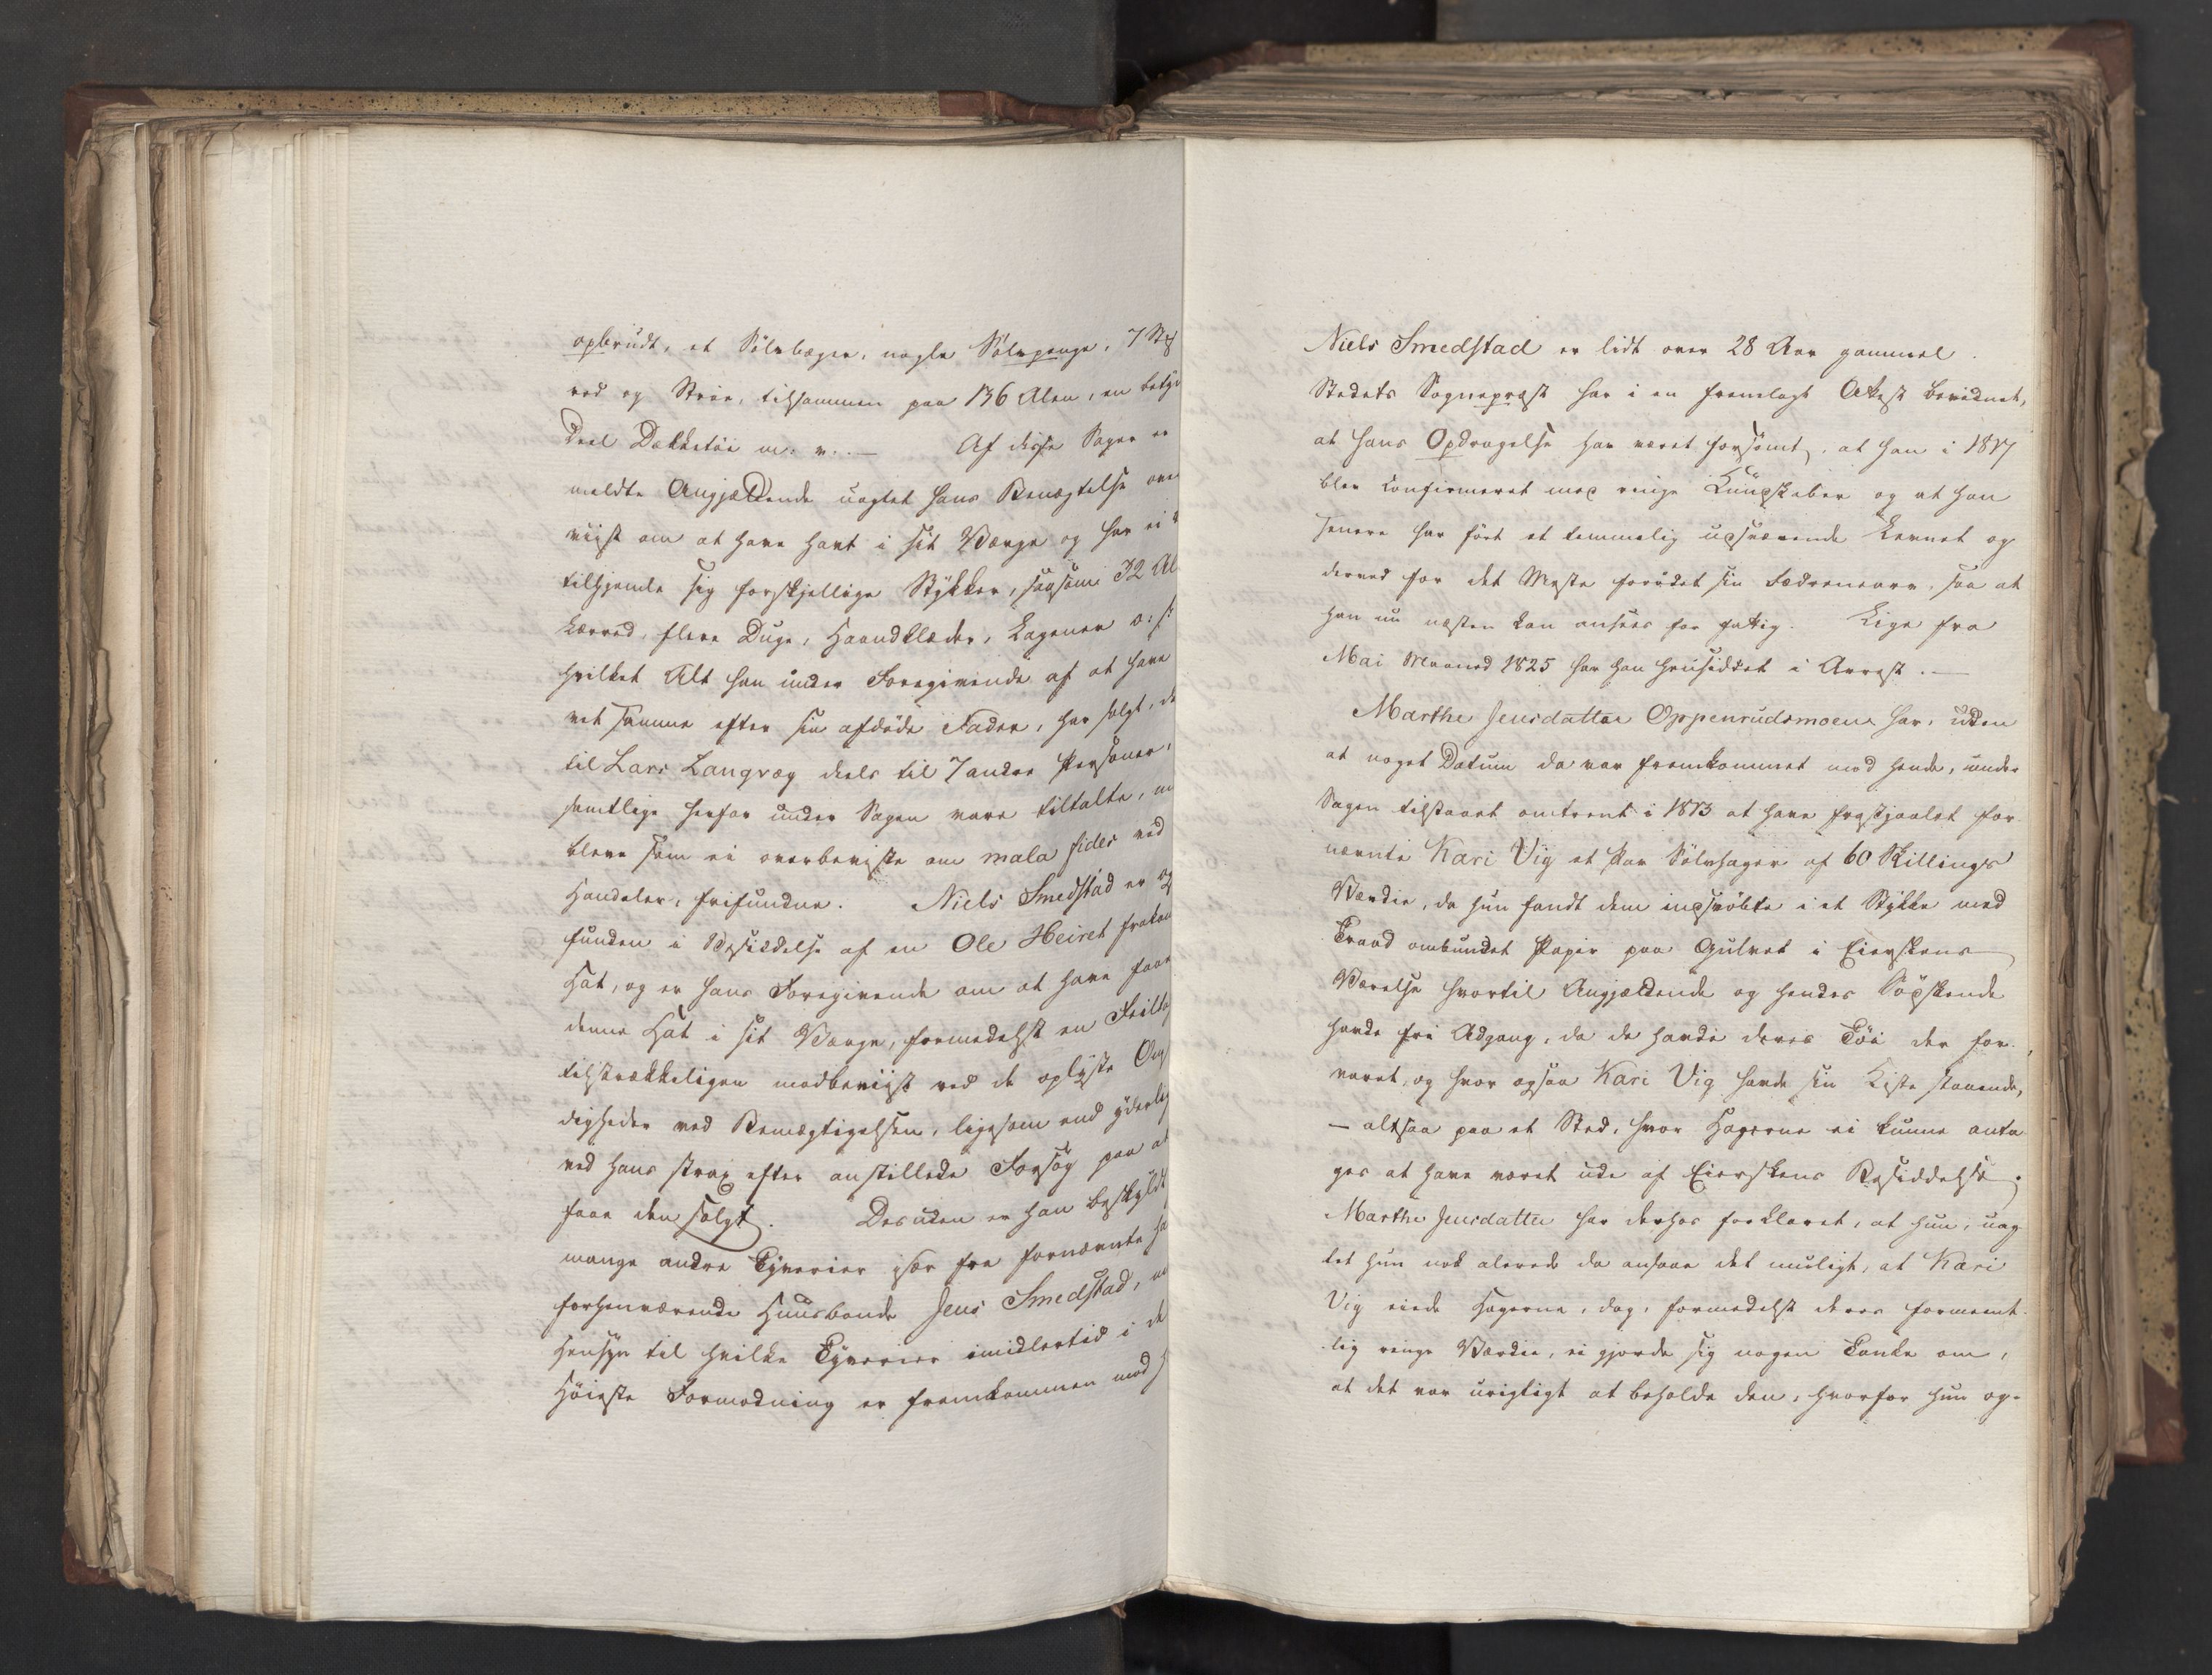 opbrudt, et Sölvbæger, nogle Sölvpenge, 7 Stkr
ved og Strie, tilsammen paa 136 Alen, en betyde
Deel Dækketöi m: v. . — Af disse Sager er
meldte Angjældende uagtet hans Benægtelse over
viist om at have havt i sit Værge og har ei
tilhjemle sig forskjellige Stykker, saasom 32 Al
Lærred, flere Duge, Haandklæder, Lagener o: s:
hvilket Alt han under Foregivende af at have
vet samme efter sin afdöde Fader, har solgt, de
til Lars Langvæg deels til 7 andre Personer,
samtlige herfor under Sagen vare tiltalte, m
bleve som ei overbeviste om mala fides ved
Handelen, frifundne. Niels Smedstad er og
funden i Besiddelse af en Ole Heiret frakom
Hat, og er hans Foregivende om at have faae
denne Hat i sit Værge, formedelst en Feiltag
tilstrækkeligen modbeviist ved de oplyste Om
digheder ved Bemægtigelsen, ligesom end yderlig
ved hans strax efter anstillede Forsög paa at
faae den solgt. Desuden er han beskyldt
mange andre Tyverier især fra fornævnte ha
forhenværende Huusbonde Jens Smedstad, m
Hensyn til hvilke Tyverier imidlertid i de
Höieste Formodning er fremkommen mod h
Niels Smedstad er lidt over 28 Aar gammel.
Stedets Sognepræst har i en fremlagt Attest bevidnet,
at hans Opdragelse har været forsömt, at han i 1817
blev confirmeret med ringe Kundskaber og at han
senere har fört et temmelig udsvævende Levnet og
derved for det Meste forödet sin Fædrenearv, saa at
han nu næsten kan ansees for fattig. Lige fra
Mai Maaned 1825 har han hensiddet i Arrest. —
Marthe Jensdatter Oppenrudsmoen har, uden
at noget Datum da var fremkommet mod hende, under
Sagen tilstaaet omtrent i 1813 at have frastjaalet for-
nævnte Kari Vig et Par Sölvhager af 60 Skillings
Værdie, da hun fandt dem indsvöbte i et Stykke med
Traad ombundet Papir paa Gulvet i Eierskens
Værelse hvortil Angjældende og hendes Södskende
havde fri Adgang, da de havde deres Töi der for-
varet, og hvor ogsaa Kari Vig havde sin Kiste staaende,
— altsaa paa et Sted, hvor Hagerne ei kunne anta-
ges at have været ude af Eierskens Besiddelse.
Marthe Jensdatter har derhos forklaret, at hun, uag-
tet hun nok alerede da ansaae det muligt, at Kari
Vig eiede Hagerne, dog, formedelst deres formeent-
lig ringe Værdie, ei gjorde sig nogen Tanke om,
at det var urigtigt at beholde dem, hvorfor hun og-